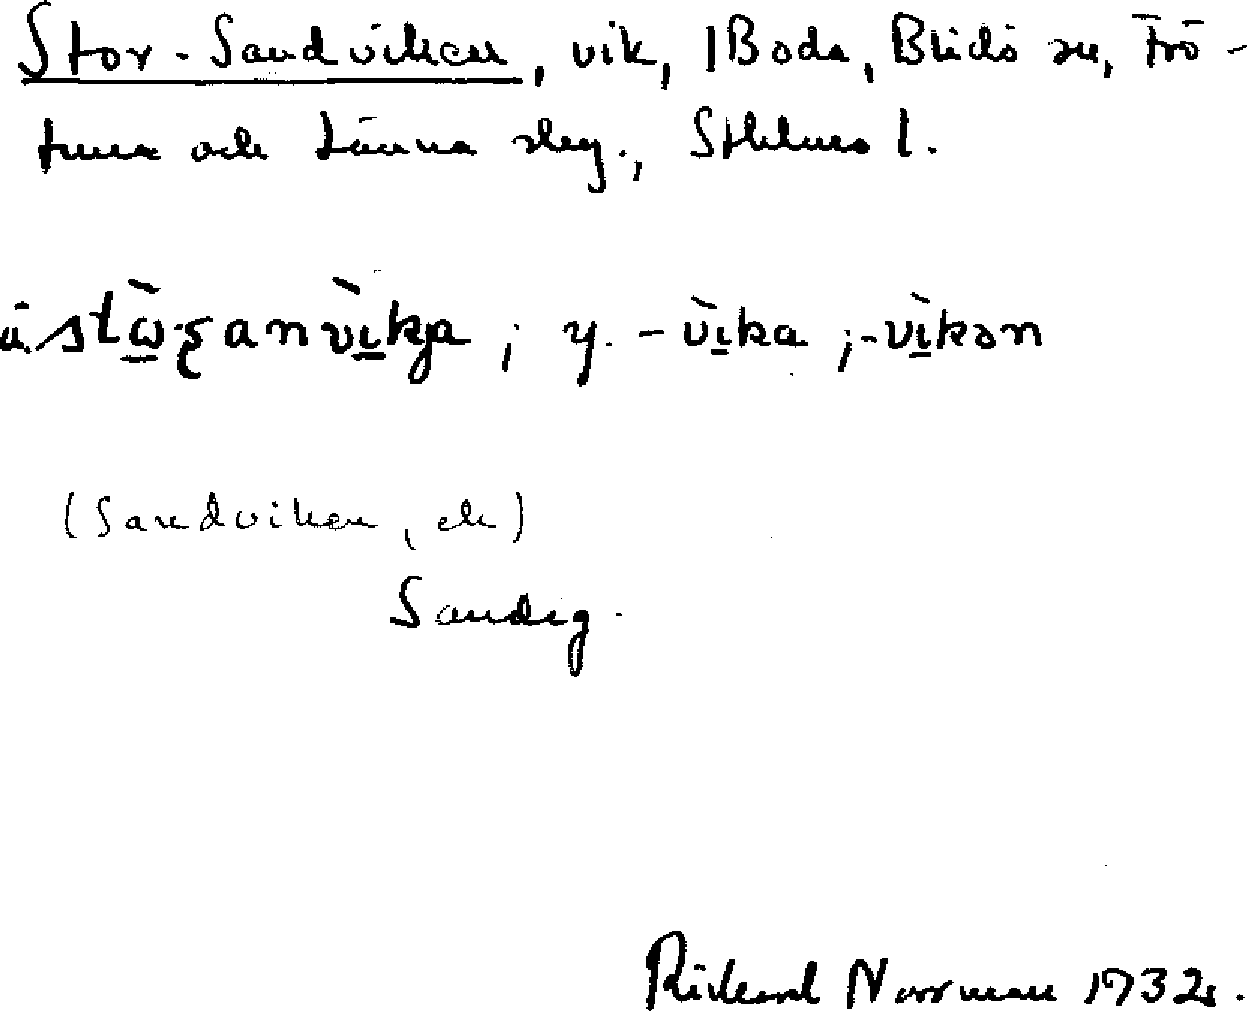 Stor-Sandviken, vik, 1 Boda, Blidö sn, Frö-
tuna och Länna skeg., Sthlms l.
ä. stὼʂanvìkja ; y. -vìka ; -vìkən
(Sandviken, ek)
Sandeg.
Rickard Norrman 1932.